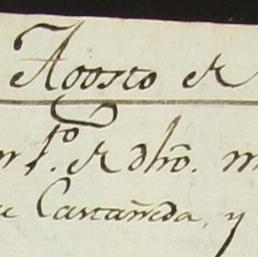 Agosto de
1º. de dhõ. m
e Castañeda, y